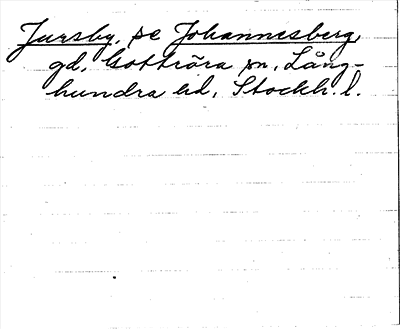 Jursby, se Johannesberg,
gd, Gottröra sn, Lång-
hundra hd, Stockh. l.